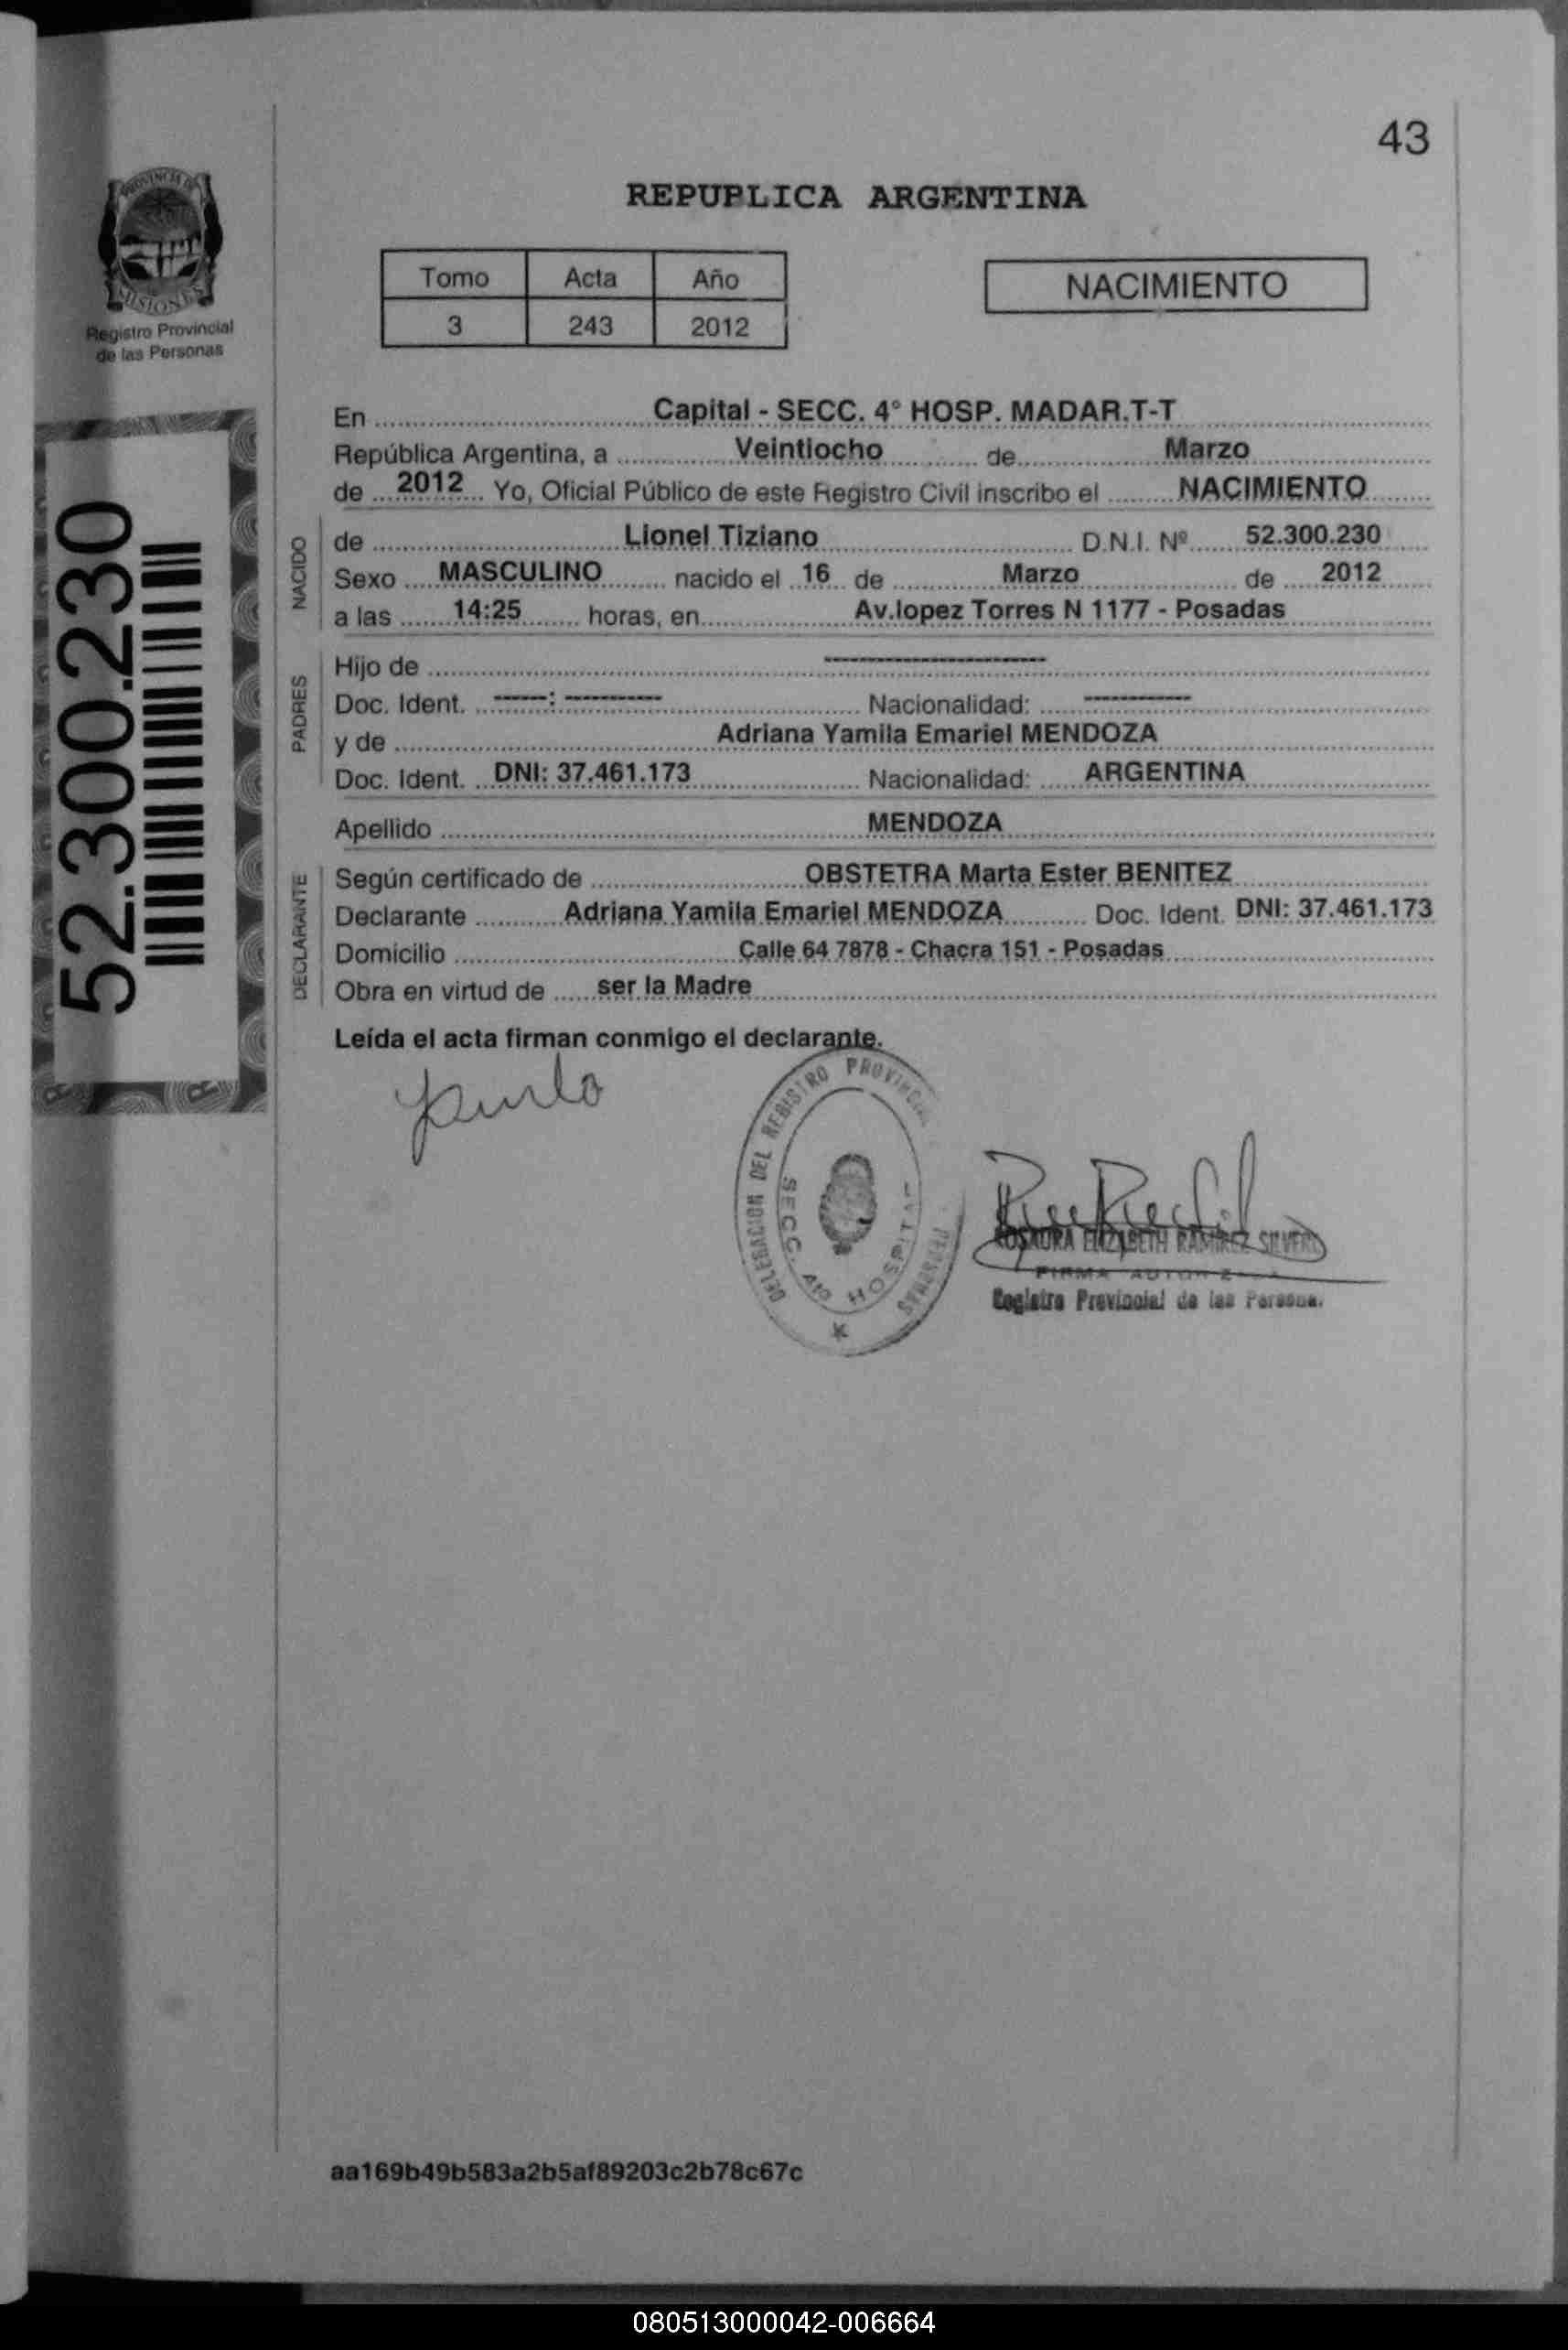 43
PROVINCIA DE
MISIONES
Registro Provincial
de las Personas
REPUPLICA ARGENTINA
Tomo Acta Año
3 243 2012
NACIMIENTO
52.300.230
En Capital - SECC. 4° HOSP. MADAR.T-T
República Argentina, a Veintiocho de Marzo
de 2012 Yo, Oficial Público de este Registro Civil inscribo el NACIMIENTO
NACIDO
de Lionel Tiziano D.N.I. Nº 52.300.230
Sexo MASCULINO nacido el 16 de Marzo de 2012
a las 14:25 horas, en Av.lopez Torres N 1177 - Posadas
PADRES
Hijo de ----------------------
Doc. Ident. -----: ---------- Nacionalidad: -----------
y de Adriana Yamila Emariel MENDOZA
Doc. Ident. DNI: 37.461.173 Nacionalidad: ARGENTINA
Apellido MENDOZA
DECLARANTE
Según certificado de OBSTETRA Marta Ester BENITEZ
Declarante Adriana Yamila Emariel MENDOZA Doc. Ident. DNI: 37.461.173
Domicilio Calle 64 7878 - Chacra 151 - Posadas
Obra en virtud de ser la Madre
Leída el acta firman conmigo el declarante.
DELEGACION DEL REGISTRO PROVINCIAL PERSONAS
SECC. 4ta HOSPITAL
ROSAURA ELIZABETH RAMIREZ
FIRMA
Registro Provincial de las Personas
aa169b49b583a2b5af89203c2b78c67c
080513000042-006664